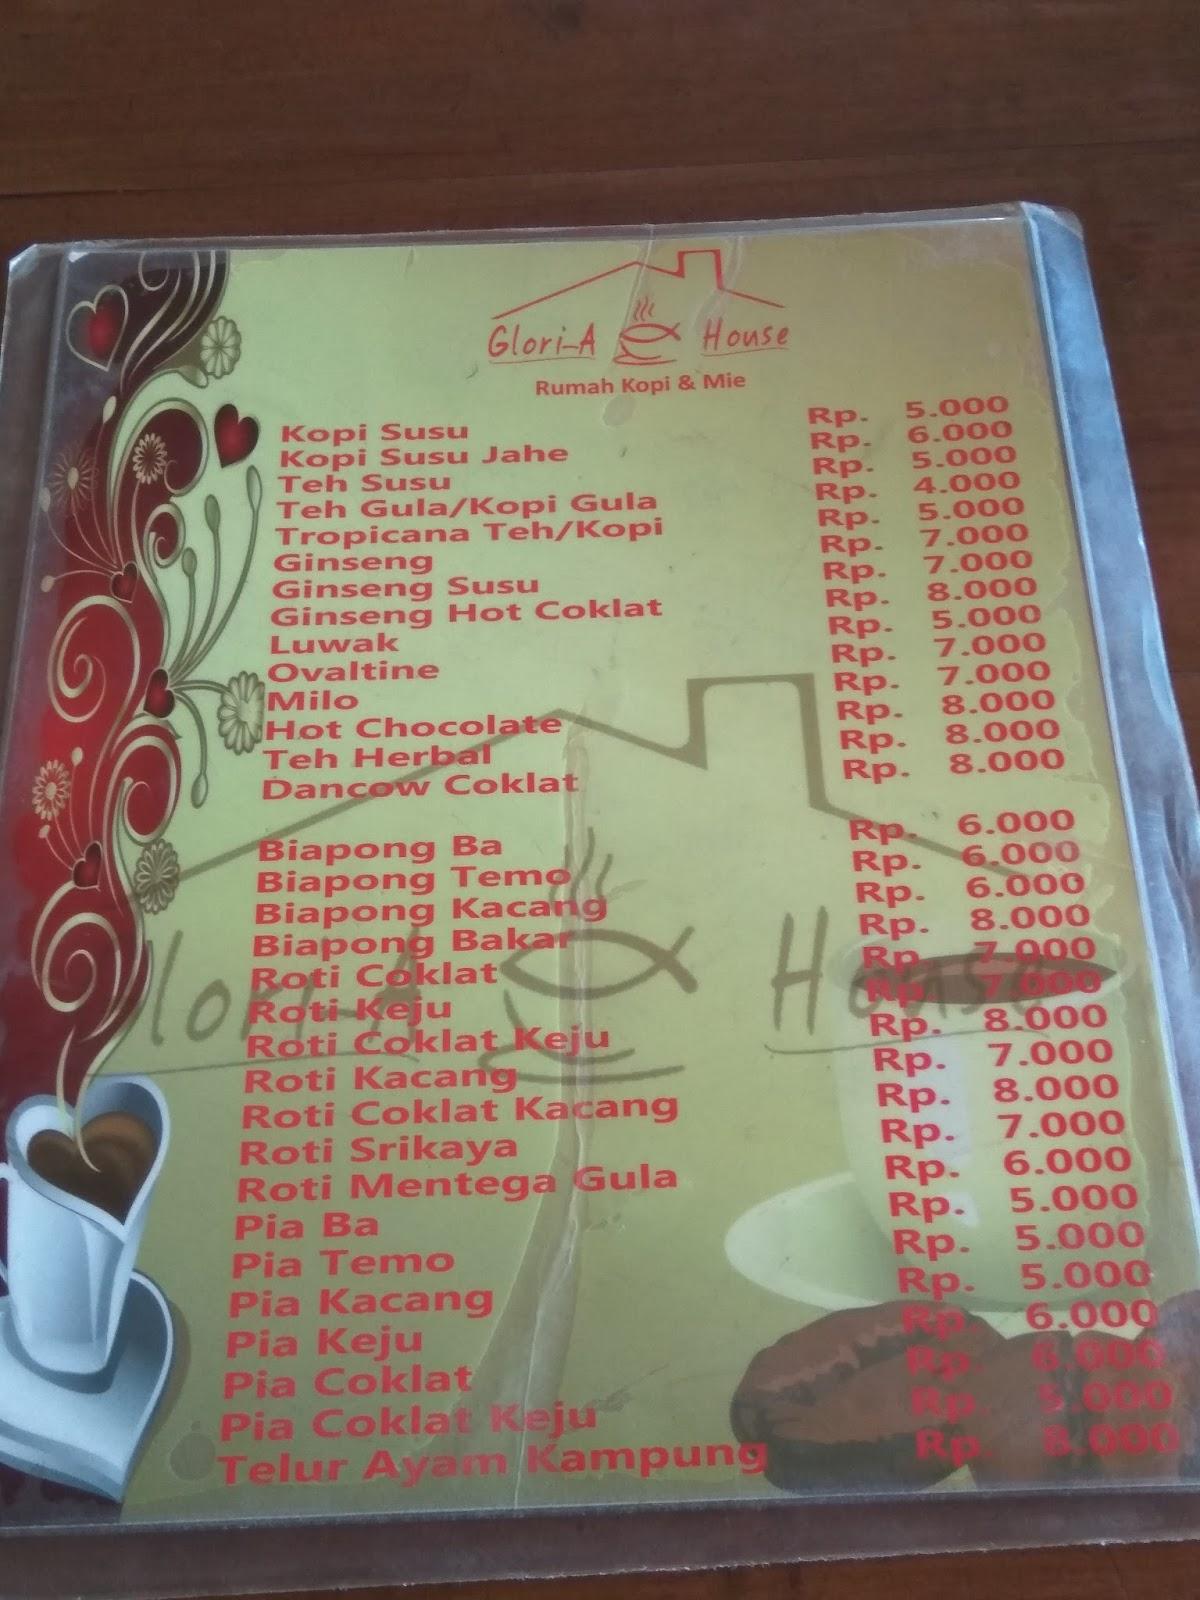 Glori-A House
Rumah Kopi & Mie
Kopi Susu Rp. 5.000
Kopi Susu Jahe Rp. 6.000
Teh Susu Rp. 5.000
Teh Gula/Kopi Gula Rp. 4.000
Tropicana Teh/Kopi Rp. 5.000
Ginseng Rp. 7.000
Ginseng Susu Rp. 7.000
Ginseng Hot Coklat Rp. 8.000
Luwak Rp. 5.000
Ovaltine Rp. 7.000
Milo Rp. 7.000
Hot Chocolate Rp. 8.000
Teh Herbal Rp. 8.000
Dancow Coklat Rp. 8.000
Biapong Ba Rp. 6.000
Biapong Temo Rp. 6.000
Biapong Kacang Rp. 6.000
Biapong Bakar Rp. 8.000
Roti Coklat Rp. 7.000
Roti Keju Rp. 7.000
Roti Coklat Keju Rp. 8.000
Roti Kacang Rp. 7.000
Roti Coklat Kacang Rp. 8.000
Roti Srikaya Rp. 7.000
Roti Mentega Gula Rp. 6.000
Pia Ba Rp. 5.000
Pia Temo Rp. 5.000
Pia Kacang Rp. 5.000
Pia Keju Rp. 6.000
Pia Coklat Rp. 6.000
Pia Coklat Keju Rp. 5.000
Telur Ayam Kampung Rp. 8.000
lori-A House